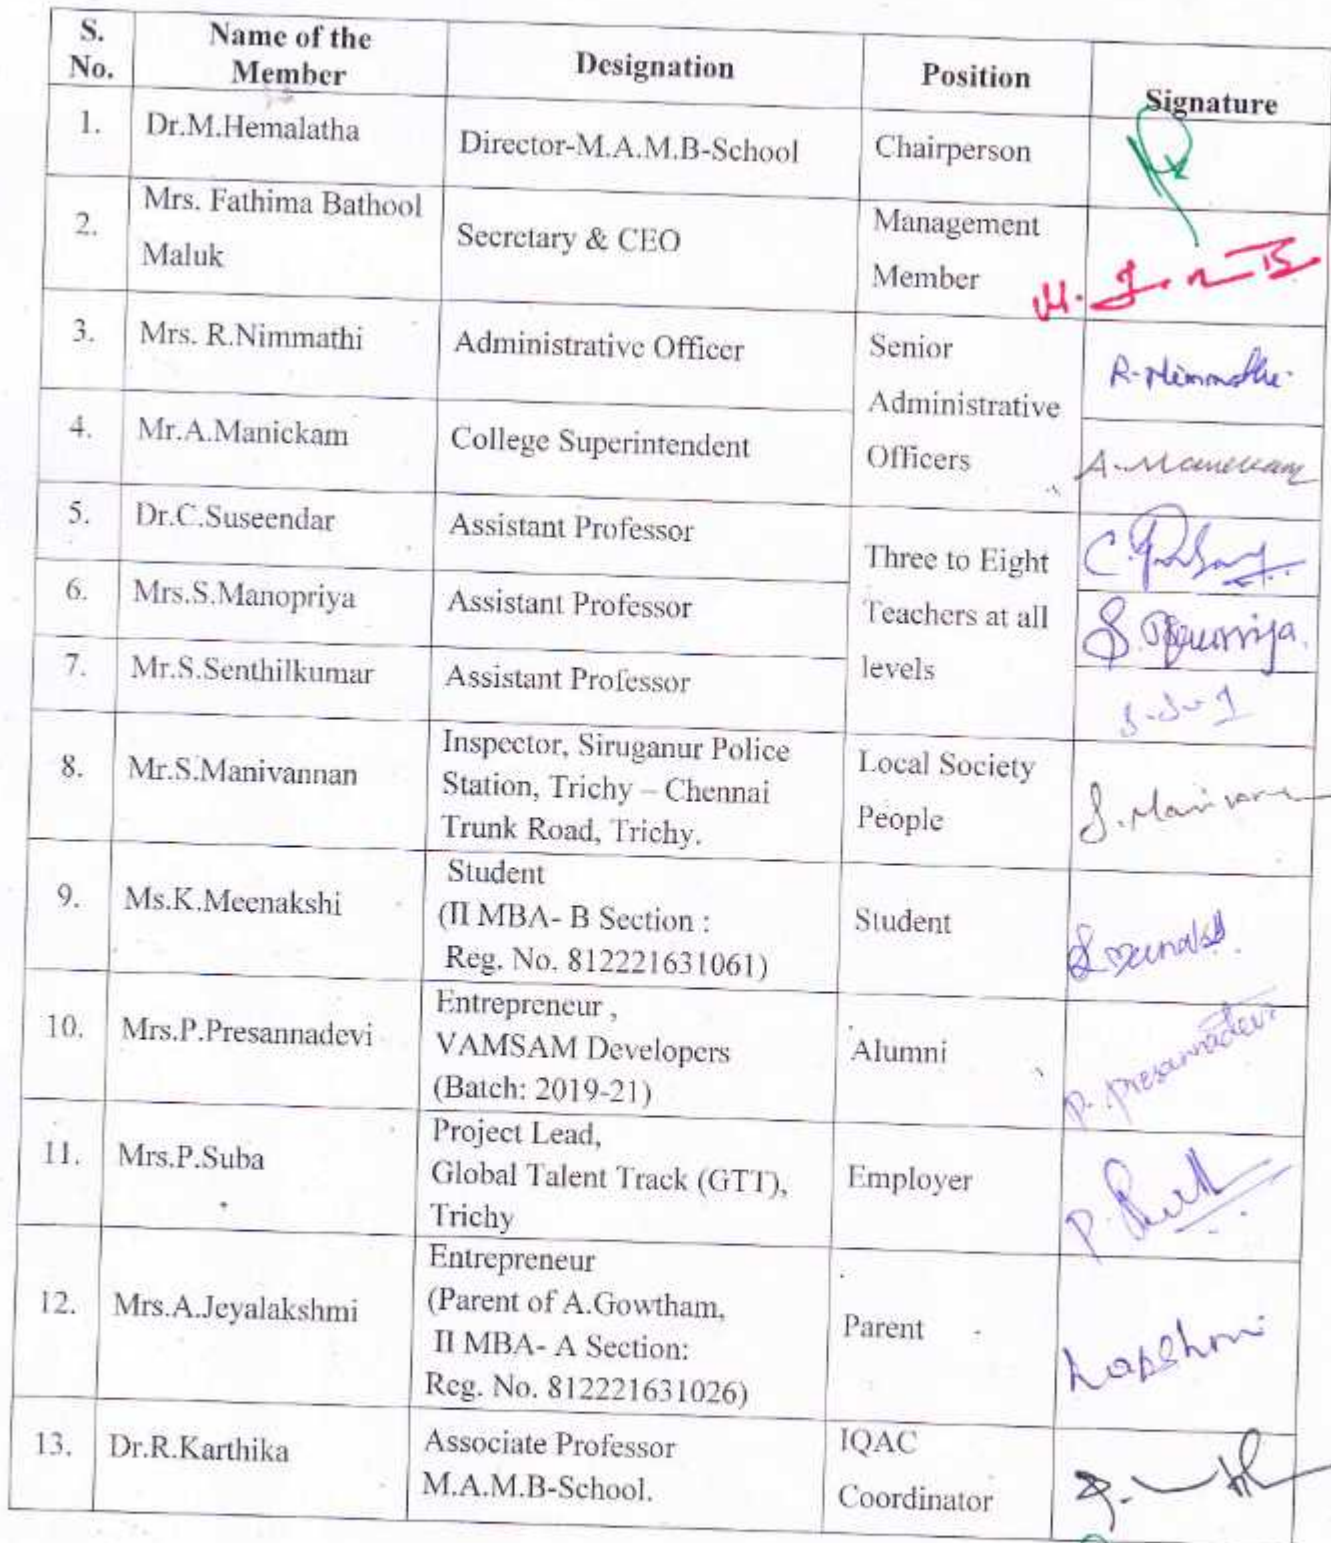 S. No. Name of the Member Designation Position Signature
1. Dr.M.Hemalatha Director-M.A.M.B-School Chairperson
2. Mrs. Fathima Bathool Maluk Secretary & CEO Management Member
3. Mrs. R.Nimmathi Administrative Officer Senior Administrative Officers R-Nimmathi
4. Mr.A.Manickam College Superintendent A-Manickam
5. Dr.C.Suseendar Assistant Professor Three to Eight Teachers at all levels
6. Mrs.S.Manopriya Assistant Professor
7. Mr.S.Senthilkumar Assistant Professor
8. Mr.S.Manivannan Inspector, Siruganur Police
Station, Trichy – Chennai
Trunk Road, Trichy. Local Society People
9. Ms.K.Meenakshi Student
(II MBA- B Section :
Reg. No. 812221631061) Student
10. Mrs.P.Presannadevi Entrepreneur ,
VAMSAM Developers
(Batch: 2019-21) Alumni P. Presannadevi
11. Mrs.P.Suba Project Lead,
Global Talent Track (GTT),
Trichy Employer
12. Mrs.A.Jeyalakshmi Entrepreneur
(Parent of A.Gowtham,
II MBA- A Section:
Reg. No. 812221631026) Parent
13. Dr.R.Karthika Associate Professor
M.A.M.B-School. IQAC Coordinator